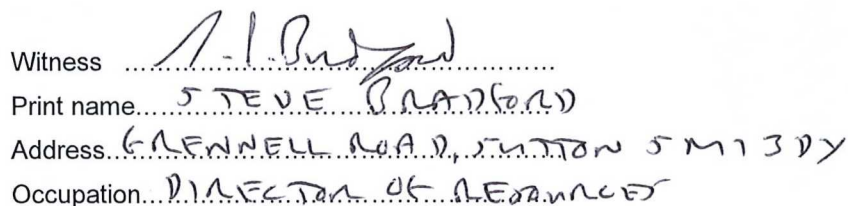 Witness S. J. Bradford
Print name STEVE BRADFORD
Address GRENNELL ROAD, SUTTON SM1 3DY
Occupation DIRECTOR OF RESOURCES